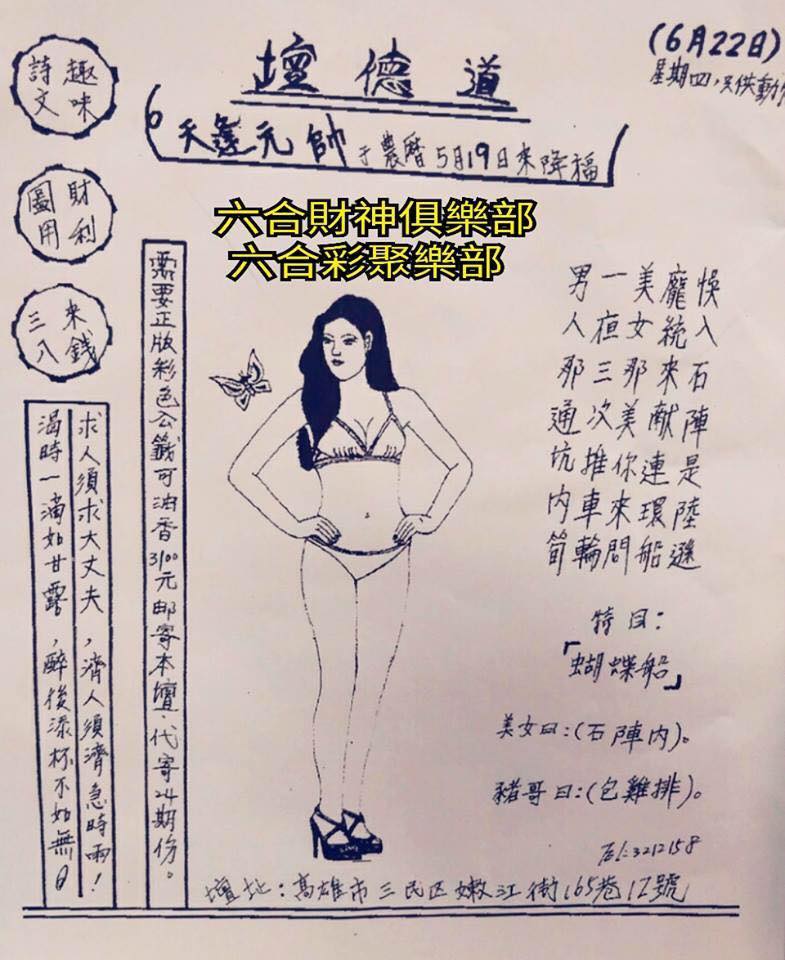 (6月22日)
星期四,只供動
道德壇
天蓬元帥于農曆5月19日來降福
趣味詩文
財利圖用
來錢三八
六合財神俱樂部
六合彩聚樂部
悞入石陣是陸遜
龐統來獻連環船
美女那美你來問
一夜三次推車輪
男人那通坑內筍
特曰：
「蝴蝶船」
美女曰：(石陣內)。
豬哥曰：(包雞排)。
需要正版彩色公籤可油香3100元邮寄本壇.代寄24期份。
求人須求大丈夫，濟人須濟急時雨！
渴時一滴如甘露，醉後添杯不如無。
Tel:3212158
壇址：高雄市三民区嫩江街165巷12號